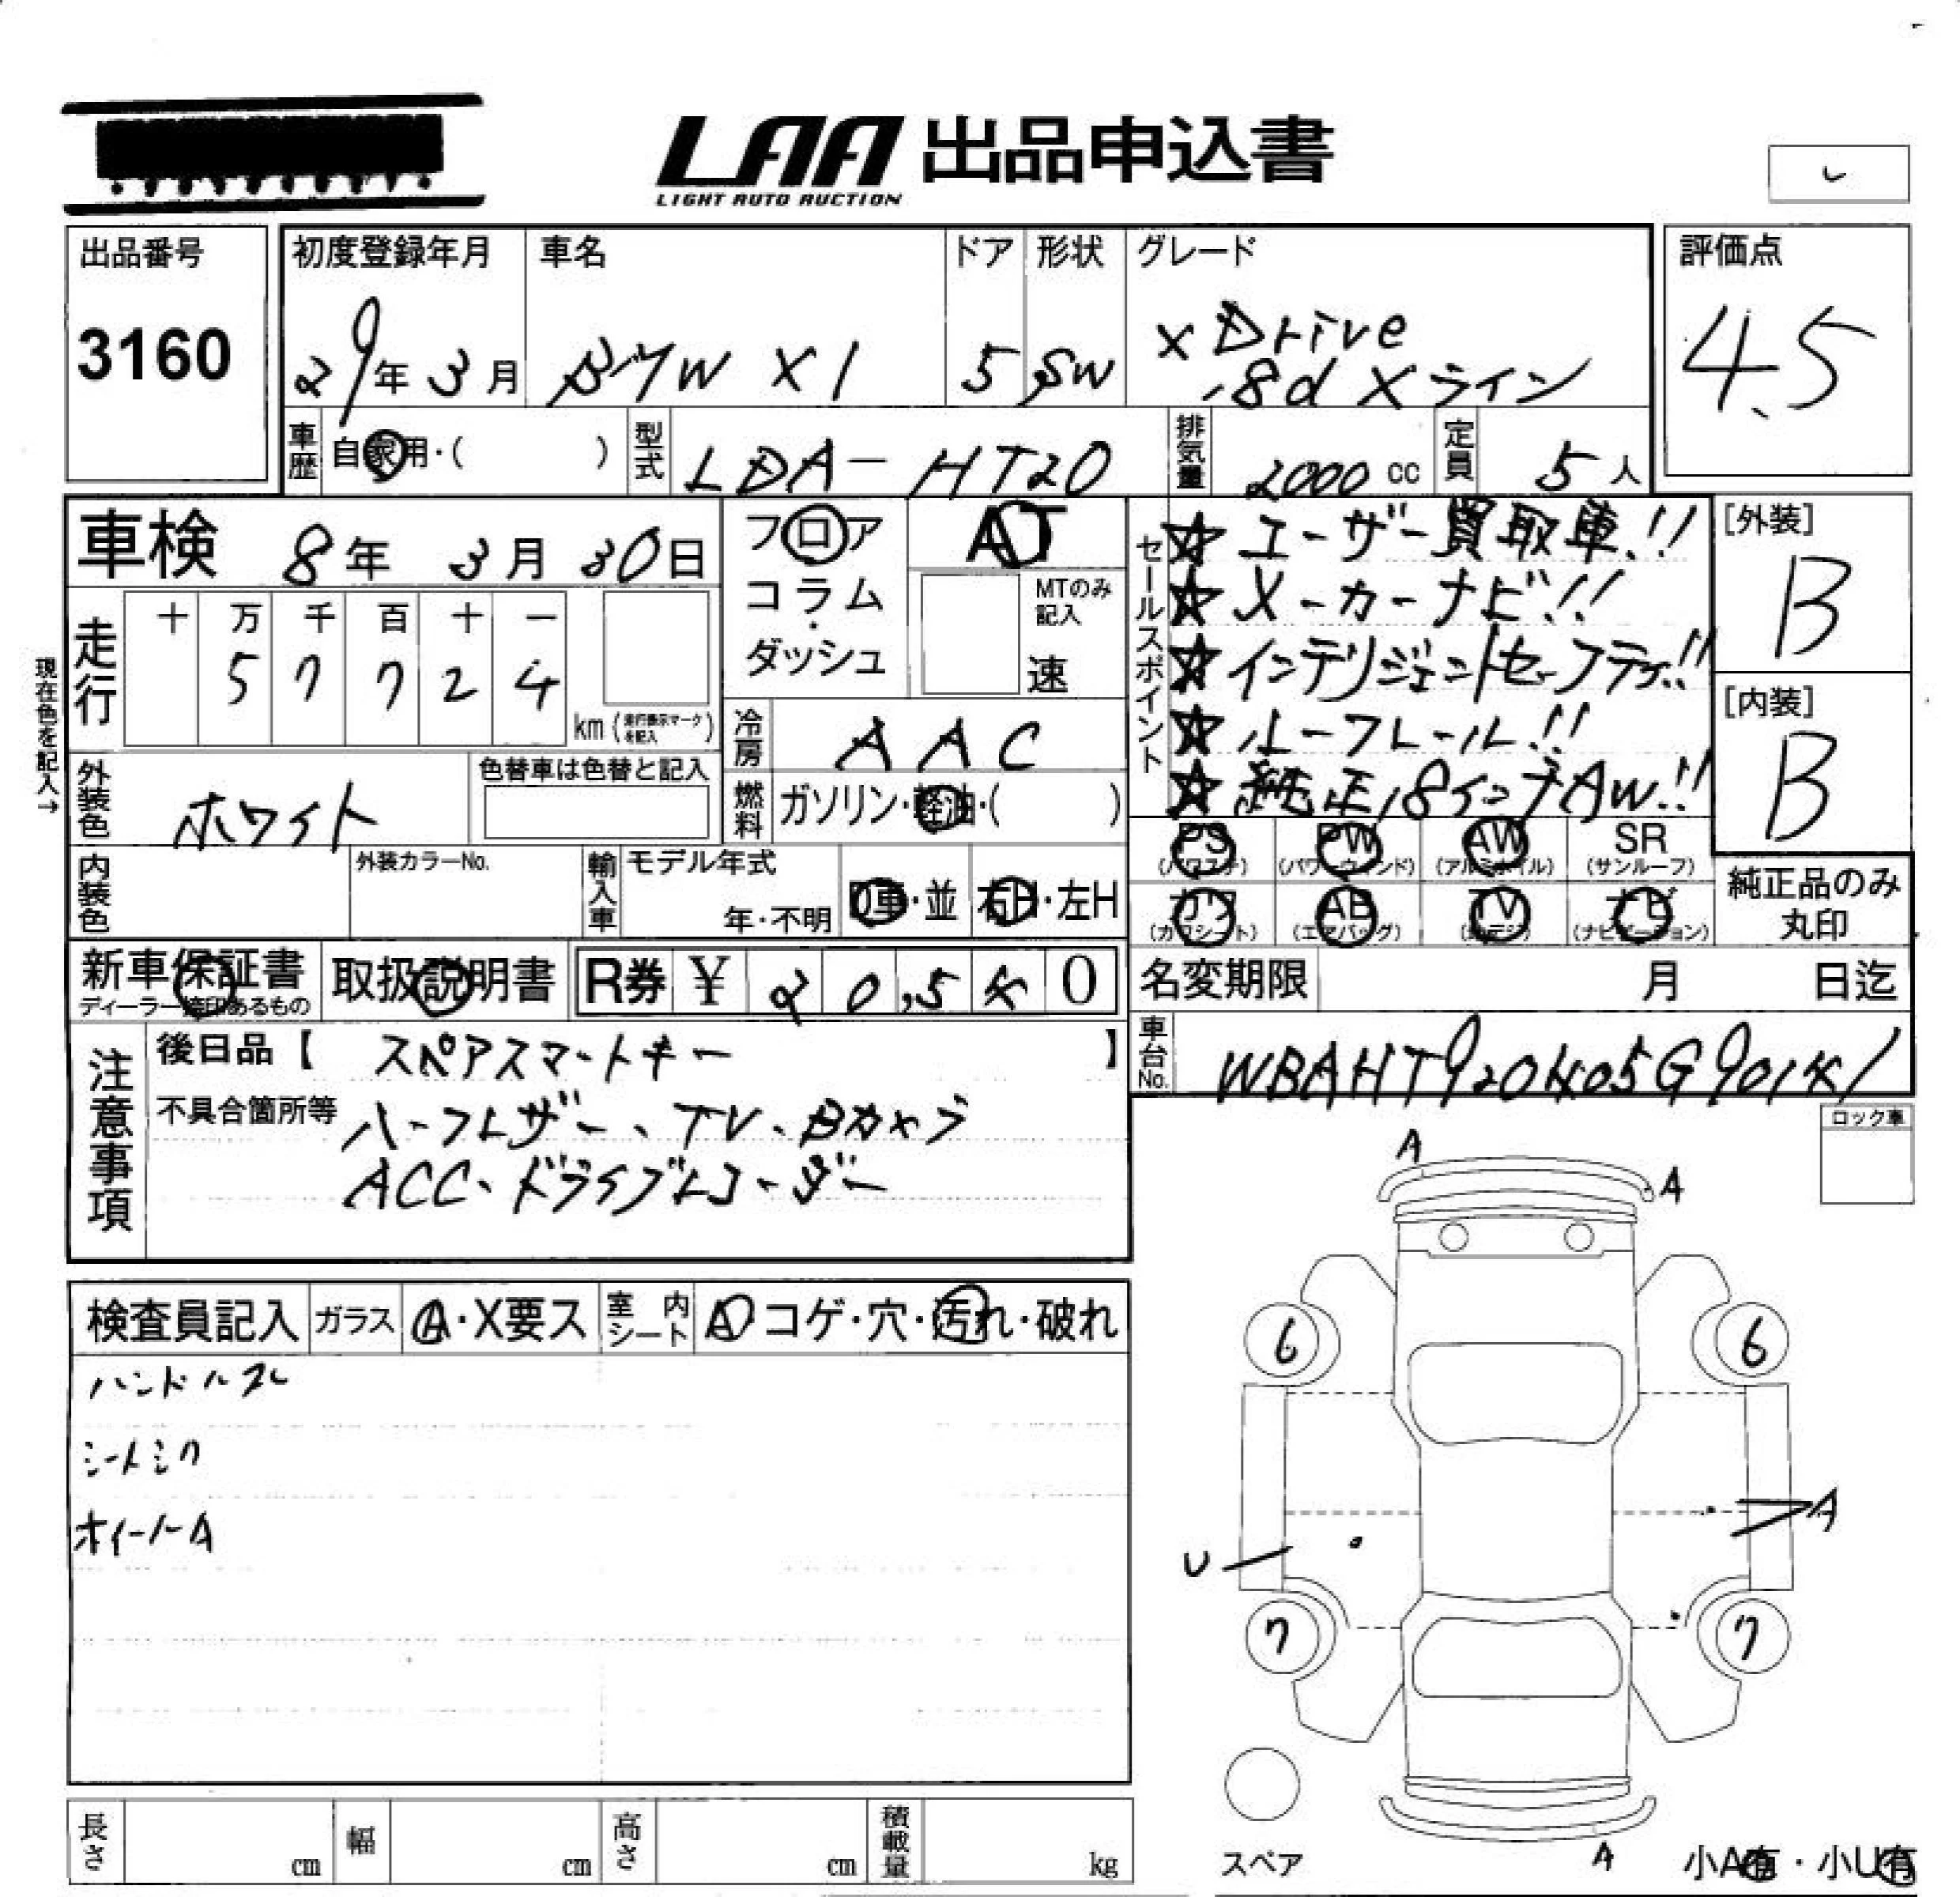 LAA 出品申込書
LIGHT AUTO AUCTION
出品番号
3160
初度登録年月
29年3月
車名
BMW X1
ドア
5
形状
SW
グレード
xDrive
18d Xライン
評価点
4.5
車歴
自家用・( )
型式
LDA-HT20
排気量
2000 cc
定員
5人
車検 8年 3月 30日
走行
十 万 千 百 十 一
5 7 7 2 4
km (走行表示マークを記入)
現在色を記入→
フロア
コラム・
ダッシュ
AT
MTのみ記入
速
冷房
AAC
燃料
ガソリン・軽油・( )
セールスポイント
☆ユーザー買取車!!
☆メーカーナビ!!
☆インテリジェントセーフティ!!
☆ルーフレール!!
☆純正18インチAW!!
[外装]
B
[内装]
B
外装色
ホワイト
色替車は色替と記入
内装色
外装カラーNo.
輸入車
モデル年式
年・不明
D車・並
右H・左H
PS (パワステ)
PW (パワーウィンド)
AW (アルミホイル)
SR (サンルーフ)
カワ (カワシート)
AB (エアバッグ)
TV (地デジ)
ナビ (ナビゲーション)
純正品のみ
丸印
新車保証書
ディーラー捺印あるもの
取扱説明書
R券 ¥ 20,540
名変期限 月 日迄
車台No.
WBAHT920405G90141
注意事項
後日品【 スペアスマートキー 】
不具合箇所等
ハーフレザー、TV、Bカメラ
ACC、ドライブレコーダー
ロック車
検査員記入
ガラス A・X要ス
室内シート A コゲ・穴・汚れ・破れ
ハンドルスレ
シートシワ
ホイールA
A
A
6
6
A
U
7
7
スペア
A
小A有・小U有
長さ cm
幅 cm
高さ cm
積載量 kg